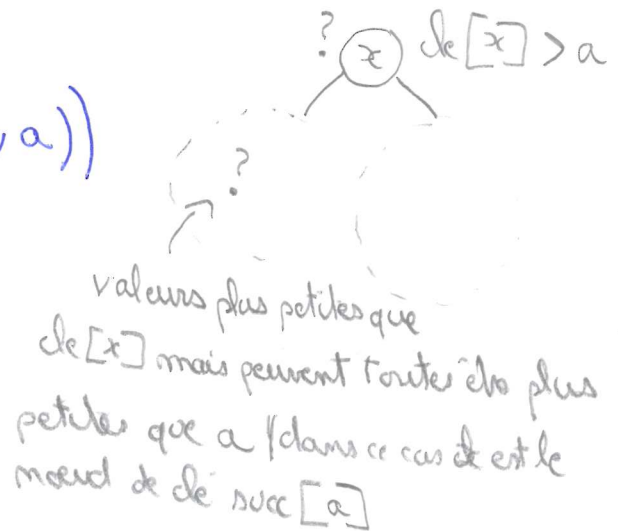 ? x cle[x] > a
, a))
?
valeurs plus petites que
cle[x] mais peuvent toutes être plus
petites que a / dans ce cas x est le
noeud de clé succ[a]